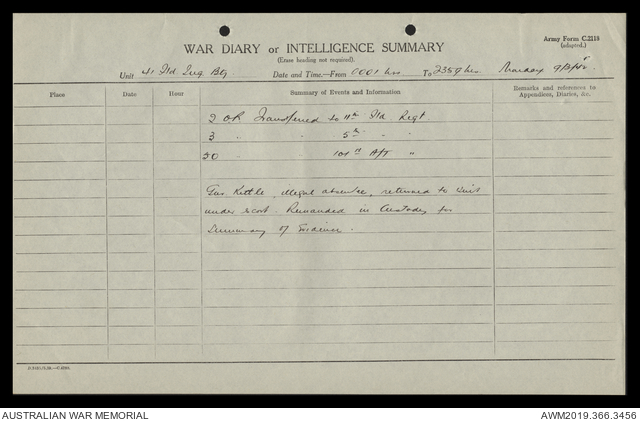 Army Form C.2118
(adapted.)
WAR DIARY or INTELLIGENCE SUMMARY
(Erase heading not required).
Unit Fld Bty Date and Time—From 0001 hrs To 2359 hrs. Monday 9/3/42
Place Date Hour Summary of Events and Information Remarks and references to
Appendices, Diaries, &c.
2 OR Transferred to 11th Fld Regt
3 " " 5th " "
30 " 101st A/T "
Gnr. Kettle, illegal absence, returned to Unit
under escort. Remanded in Custody for
Summary of Evidence.
AUSTRALIAN WAR MEMORIAL AWM2019.366.3456